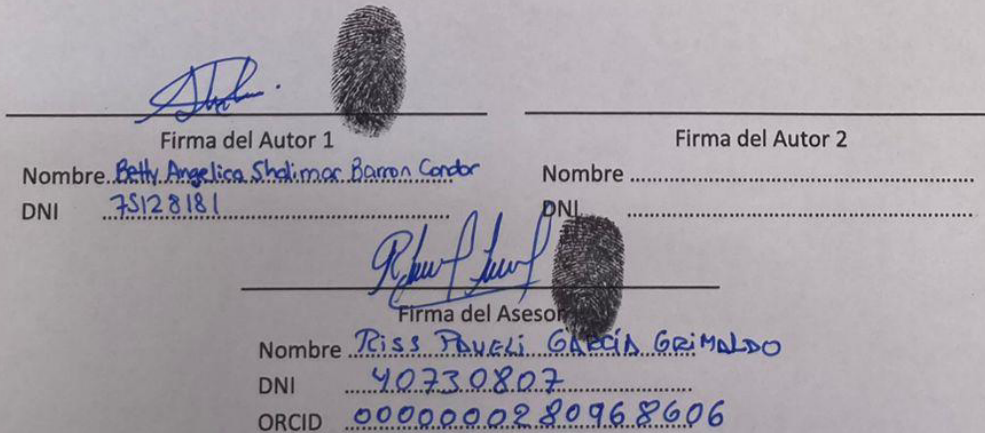 Firma del Autor 1
Nombre Betty Angelica Shalimar Barron Condor
DNI 75128181
Firma del Autor 2
Nombre
DNI
Firma del Asesor
Nombre RISS PAVELI GARCÍA GRIMALDO
DNI 40730807
ORCID 0000000280968606